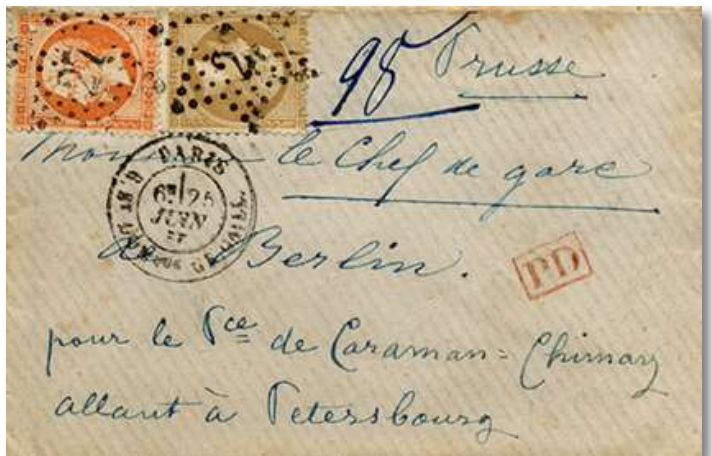 27
2
98 Prusse
Monsieur le Chef de gare
de Berlin.
PARIS
6E 25
JUIN
PD
pour le Pce de Caraman=Chimay
allant à Petersbourg